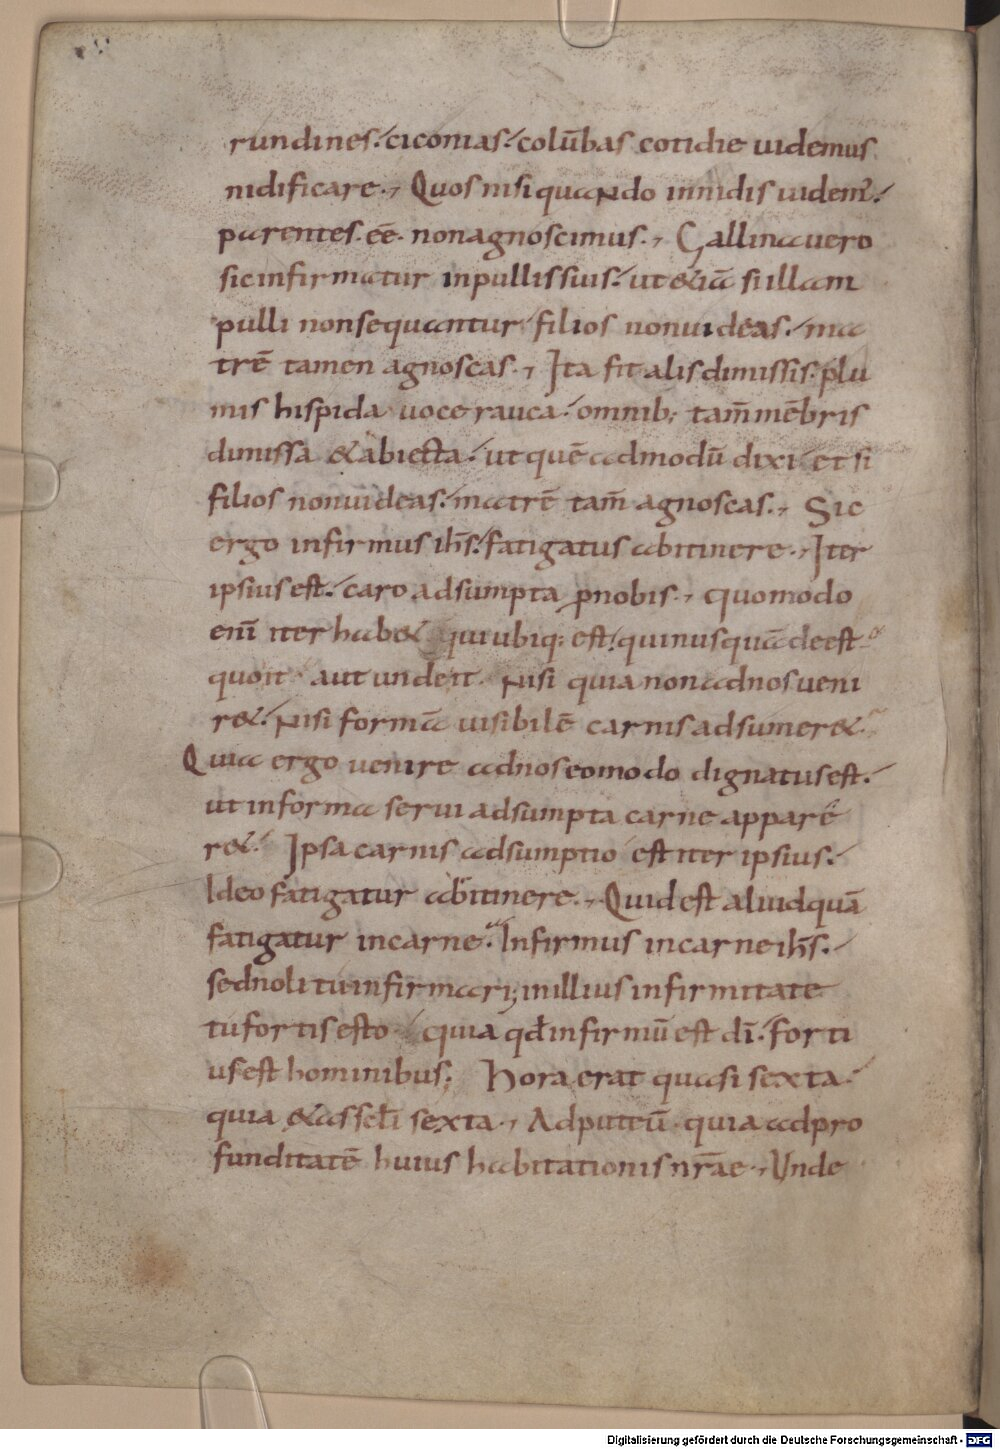 rundines. ciconias. colūbas cotidie uidemus
nidificare. Quos nisi quando innidis uidem̄.
parentes. eē. non agnoscimus. Gallina uero
sic infirmatur inpullis suis. ut &iā si illam
pulli non sequantur filios nonuideas. ma
trē tamen agnoscas. Ita fit alis dimissis. plu
mis hispida uoce rauca. omnib; tam̄ mēbris
dimissa & abiecta. ut quē admodū dixi et si
filios nonuideas. matrē tam̄ agnoscas. Sic
ergo infirmus ih̄s. fatigatus abitinere. Iter
ipsius est. caro adsumpta ꝓnobis. quomodo
enī iter hab& qui ubiq; est. qui nusquā deest
quo it aut unde it. Nisi quia non adnos ueni
r&. Nisi formā uisibilē carnis adsumer&.
Quia ergo uenire adnos eomodo dignatus est.
ut informa serui adsumpta carne apparē
r&. Ipsa carnis adsumptio est iter ipsius.
Ideo fatigatur abitinere. Quid est aliud quā
fatigatur incarne. Infirmus incarne ih̄s.
sed noli tu infirmari; inillius infirmitate
tu fortis esto quia qđ infirmū est dī. forti
us est hominibus. Hora erat quasi sexta.
quia &as sc̄li sexta. Adputeū. quia adpro
funditatē huius habitationis nr̄ae. Unde
Digitalisierung gefördert durch die Deutsche Forschungsgemeinschaft - DFG